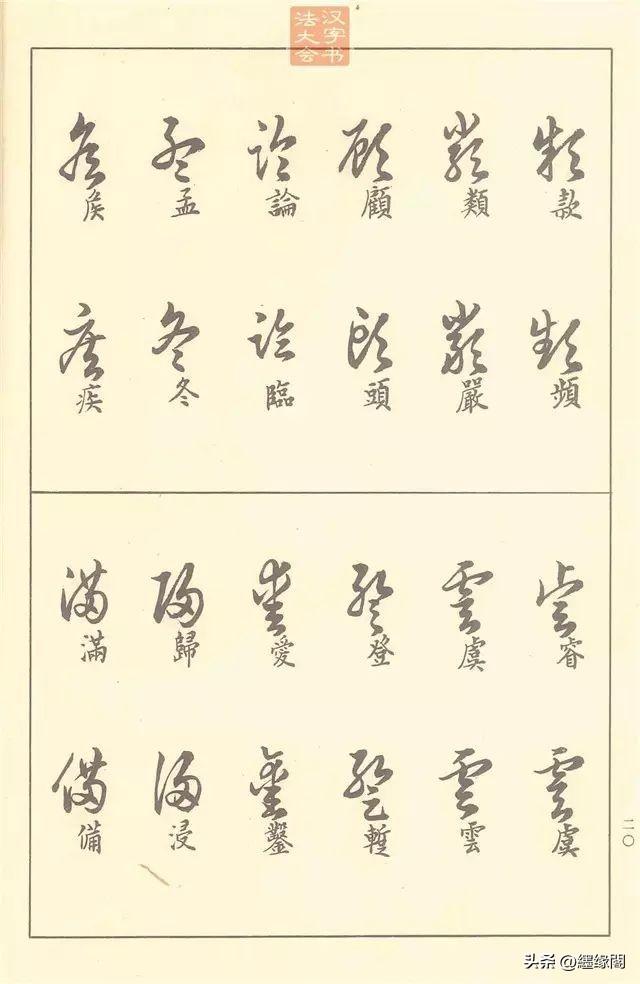 汉字书
法大会
款
頻
類
嚴
顧
頭
論
臨
孟
冬
矦
疾
睿
虞
虞
雲
登
愛
鑿
歸
浸
滿
備
二〇
头条 @缘閣